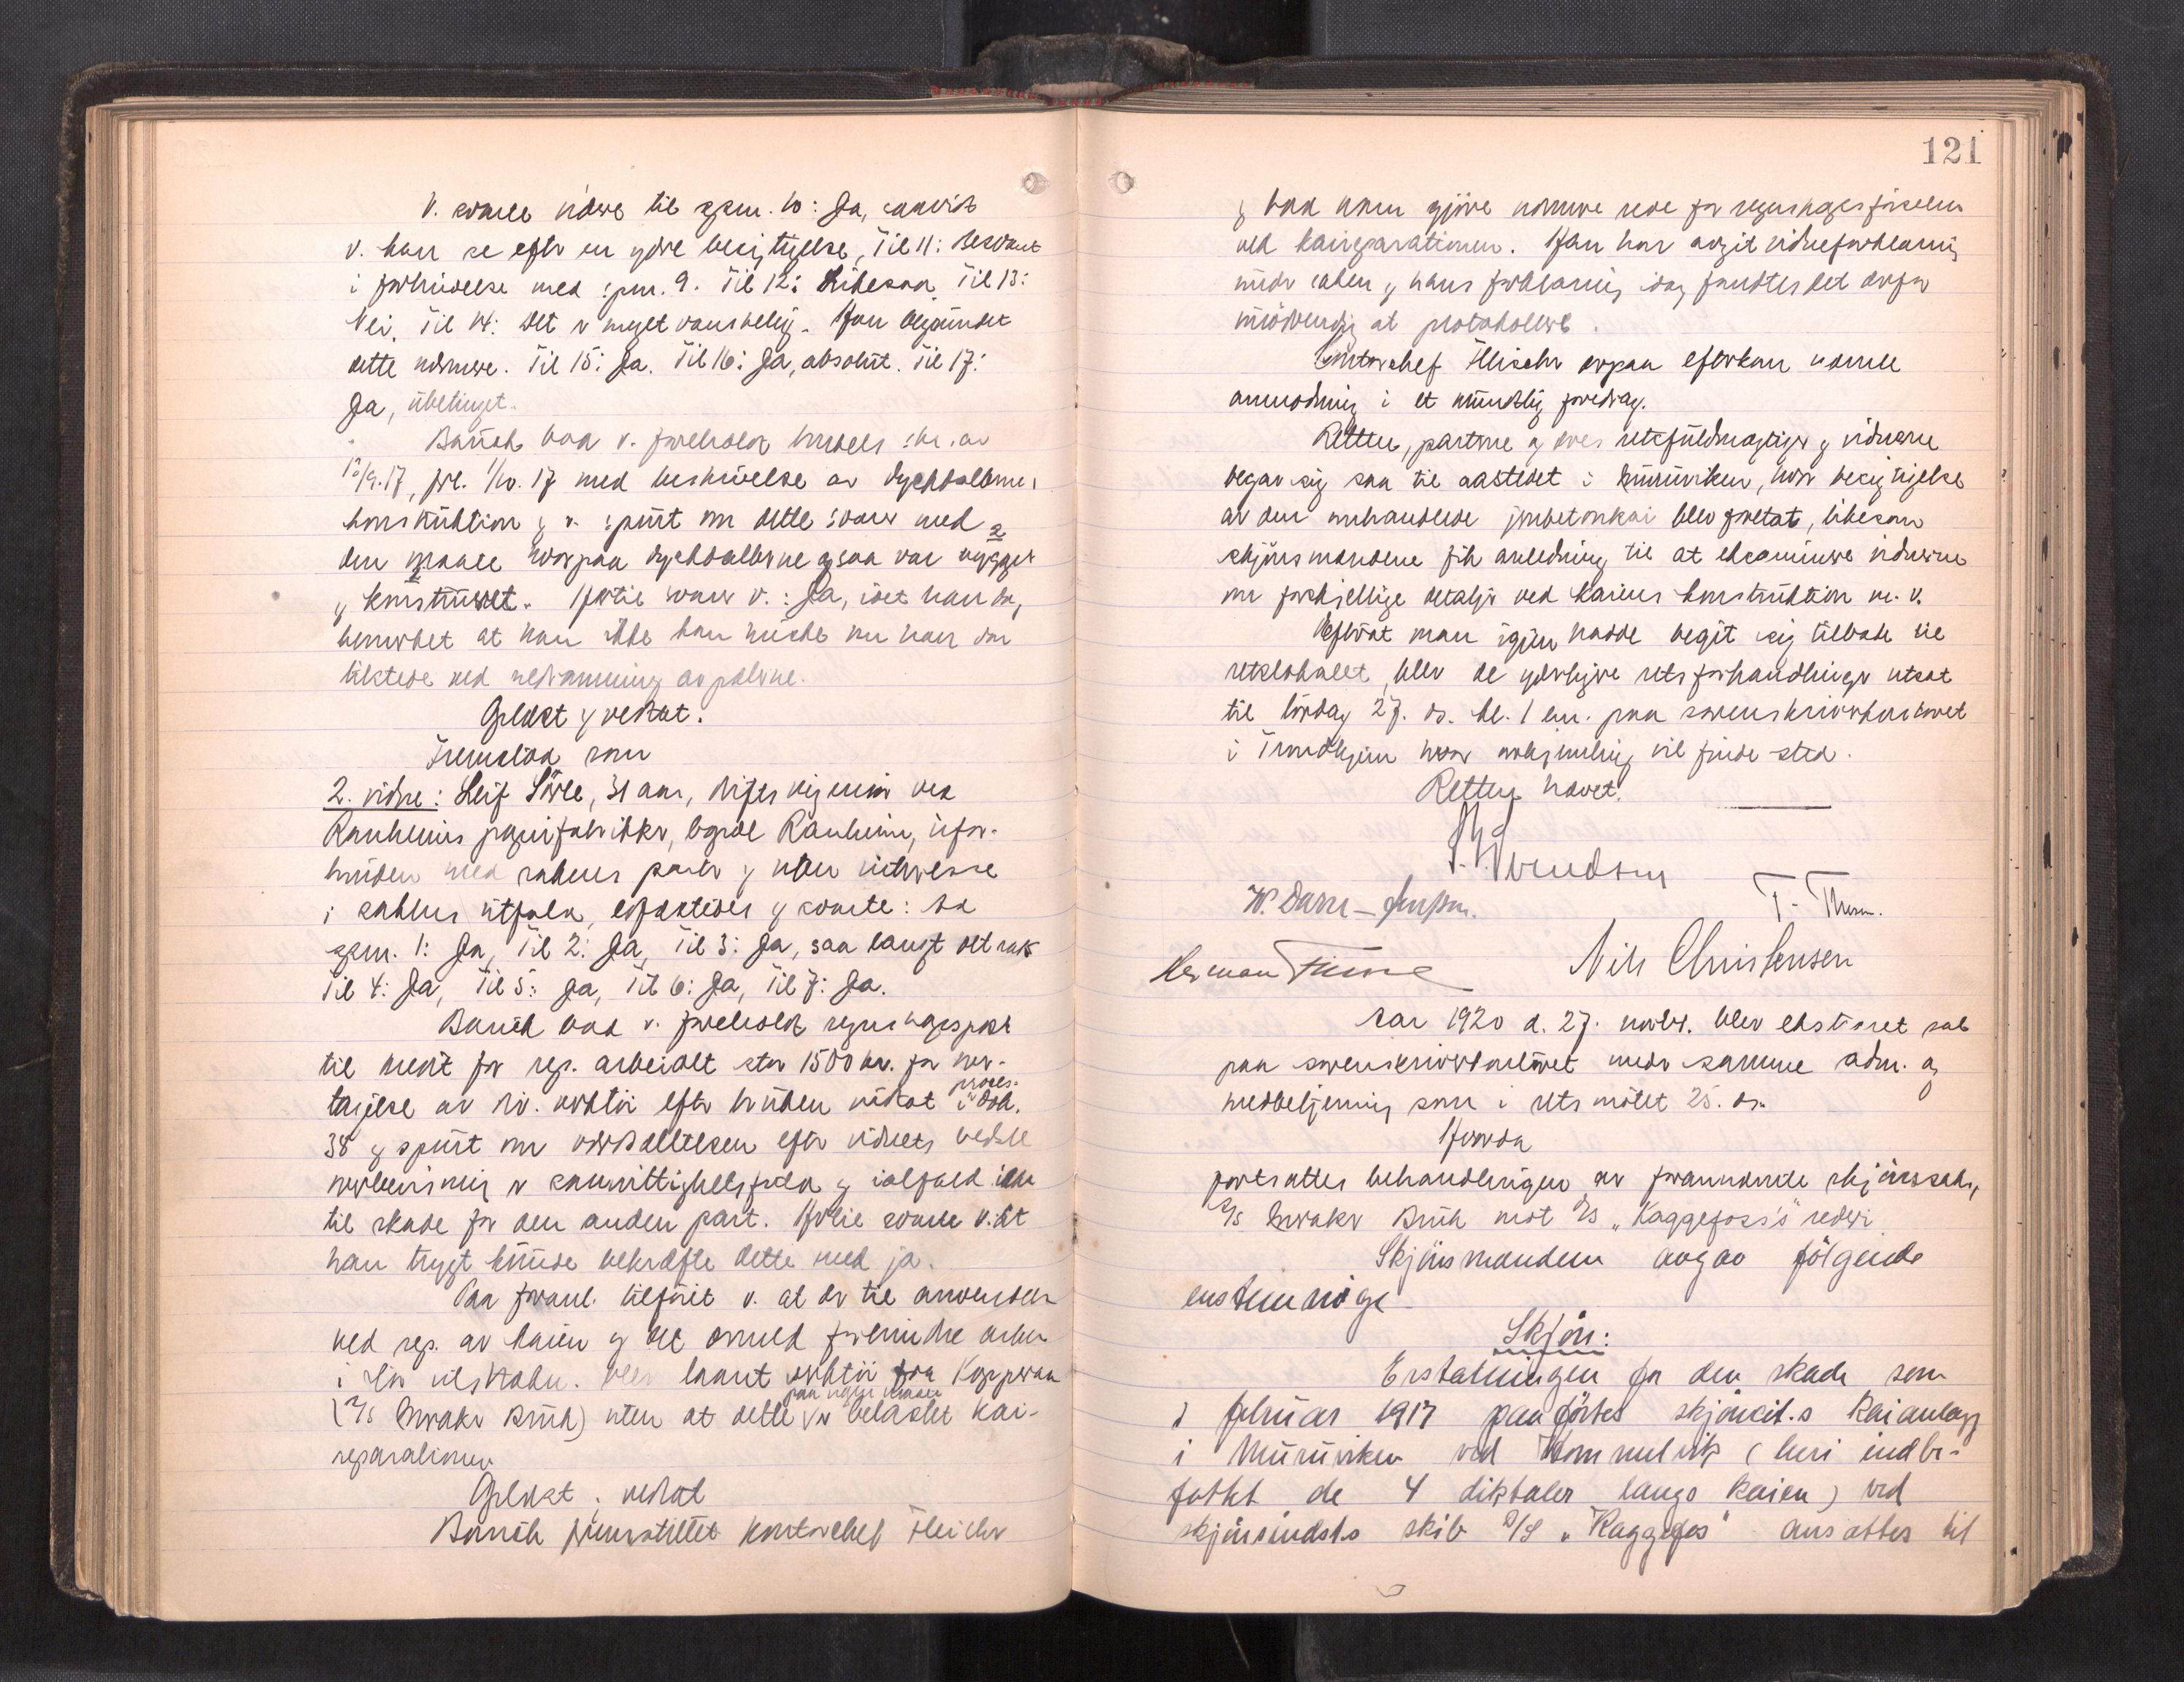 V. svarte videre til spm. 10: Ja, saavidt
v. kan se efter en ydre besigtigelse, Til 11: Besvaret
i forbindelse med spm. 9. Til 12: Likesaa. Til 13:
Nei. Til 14: Det er meget vanskelig. Han begrundet
dette nærmere. Til 15: Ja. Til 16: Ja, absolut. Til 17:
Ja, ubetinget.
Bauck bad v. foreholdt brukets skr. av
/9.17, frl. 1/10.17 med beskrivelse av dychdalbernes
konstruktion og v. spurt om dette svarer med
den maate hvorpaa dychdalberne ogsaa var bygget
og konstrueret. Hertil svarer v.: Ja, idet han dog
bemerket at han ikke kan huske om han var
tilstede ved nedramning av pælerne.
Oplæst og vedtat.
Fremstod som
2. vidne: Leif Sörle, 31 aar, driftsingeniør ved
Ranheims papirfabrikker, bopæl Ranheim, ufor-
bunden med sakens parter og uten interesse
i sakens utfald, edfæstedes og svarte: Til
spm. 1: Ja, Til 2: Ja, Til 3: Ja, saa langt det rak
Til 4: Ja, Til 5: Ja, Til 6: Ja, Til 7: Ja.
Bauck bad v. foreholdt regnskapspost
til kredit for rep. arbeidet stor 1500 kr. for over-
proces-
tagelse av div. verktöi efter bruken uttat i dok.
38 og spurt om værdsættelsen efter vidnets bedste
overbevisning er samvittighetsfuld og ialfald ikke
til skade for den anden part. Hertil svarte v. at
han trygt kunde bekræfte dette med ja.
Paa foranl. tilføiet v. at der til anvendelse
ved rep. av kaien og det dermed forbundne arbeide
i stor utstrækn. blev laant verktöi fra Kopperaa
paa nogen maate
(A/S Meraker Bruk) uten at dette er belastet kai-
reparationen
Oplæst og vedtat
Bauck fremstillet kontorchef Fleischer
121
og bad ham gjöre nærmere rede for regnskapsförselen
ved kaireparationen. Han har avgit vidneforklaring
under saken og hans forklaring idag fandtes det derfor
unödvendig at protokollere.
Kontorchef Fleischer derpaa efterkom denne
anmodning i et mundtlig foredrag.
Retten, parterne og deres retsfuldmægtiger og vidnerne
begav sig saa til aastedet i Muruviken, hvor besigtigelse
av den omhandlede jernbetonkai blev foretat, likesom
skjönsmændene fik anledning til at eksaminere vidnerne
om forskjellige detaljer ved kaiens konstruktion m. v.
Efterat man igjen hadde begit sig tilbake til
retslokalet, blev de yderligere retsforhandlinger utsat
til lördag 27. ds. kl. 1 em. paa sorenskriverkontoret
i Trondhjem hvor avhjemling vil finde sted.
Retten hævet.
W. Dass-
T. Thorsen.
Herman Finne
Nils Christensen
Aar 1920 d. 27. novbr. blev ekstraret sat
paa sorenskriverkontoret under samme adm. og
medbetjening som i retsmötet 25. ds.
Hvorda
fortsattes behandlingen av forannævnte skjönssak,
A/S Meraker Bruk mot D/S "Kaggefoss's" rederi
Skjönsmændene avgav fölgende
enstemmige
Skjön:
Erstatningen for den skade som
i februar 1917 paaförtes skjöncit.s kaianlæg
i Muruviken ved Hommelvik (heri indbe-
fattet de 4 diktaler langs kaien) ved
skjönsindst.s skib D/S "Kaggefos" ansættes til